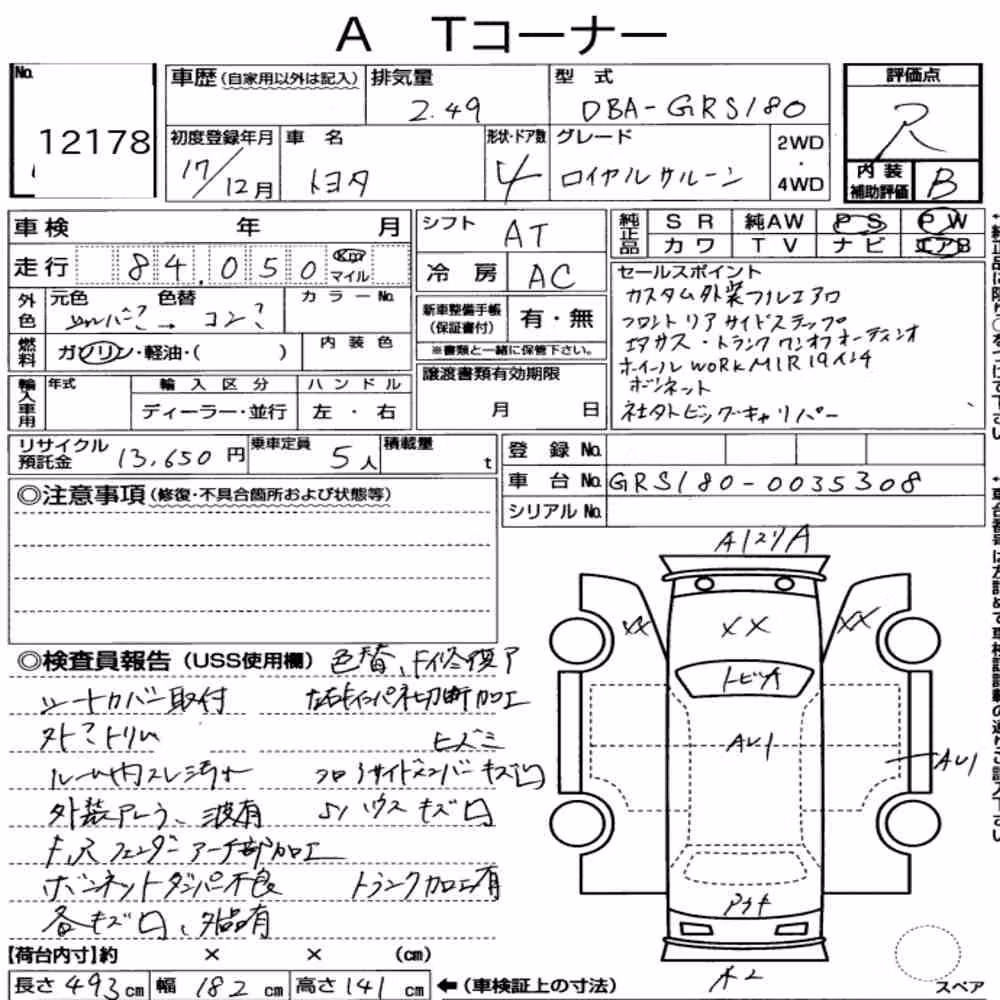 A Tコーナー
No. 12178
車歴（自家用以外は記入） 排気量 2.49 型式 DBA-GRS180 評価点 R
初度登録年月 17/12月 車名 トヨタ 形状・ドア数 4 グレード ロイヤルサルーン 2WD・4WD 内装補助評価 B
車検 年 月
走行 84,050 Km マイル
シフト AT
冷房 AC
純正品 SR 純AW PS PW
カワ TV ナビ エアB
外色 元色 シルバー? → 色替 コン? カラーNo.
燃料 ガソリン・軽油・( ) 内装色
新車整備手帳（保証書付） 有・無
※書類と一緒に保管下さい。
セールスポイント
カスタム外装フルエアロ
フロント リア サイドステップ
エアサス・トランクワンオフオーディオ
ホイール WORK MIR 19インチ
ボンネット
社外ビッグキャリパー
輸入車用 年式 輸入区分 ハンドル
ディーラー・並行 左・右
譲渡書類有効期限
月 日
リサイクル預託金 13,650円 乗車定員 5人 積載量 t
登録No.
車台No. GRS180-0035308
シリアルNo.
◎注意事項（修復・不具合箇所および状態等）
◎検査員報告（USS使用欄） 色替、F修復ア
シートカバー取付 左右インパネ切断加工
外?トリム ヒズミ
ルーム内スレ汚れ フロントサイドメンバーキズ凹
外装アレ、波有 ハウスキズ凹
F、Rフェンダーアーチ部加工
ボンネットダンパー不良 トランク加工有
各キズ凹、外品有
A1 A
XX XX XX
トビA
AU1
AU1
アナキ
スペア
【荷台内寸】約 × × (cm)
長さ 493cm 幅 182cm 高さ 141cm ←（車検証上の寸法）